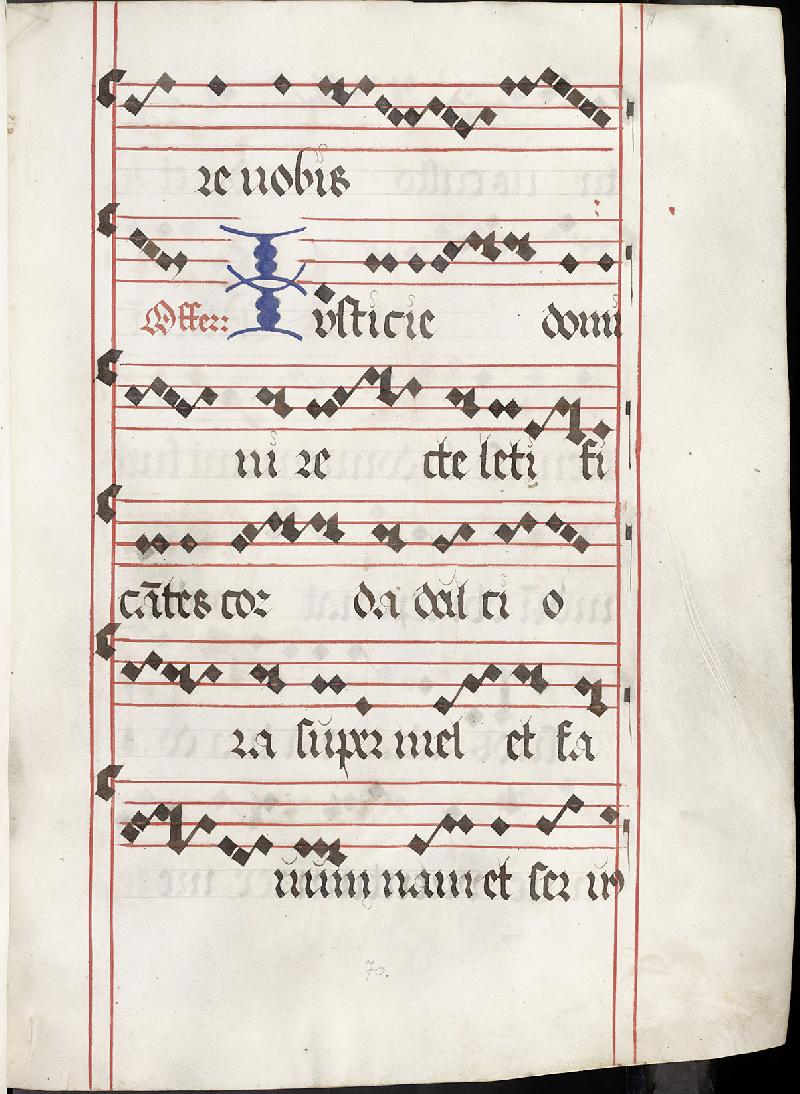 re nobis
Offer: Iusticie domi
ni re cte leti fi
cātes cor da dul ci o
ra super mel et fa
uum nam et ser uus
70.